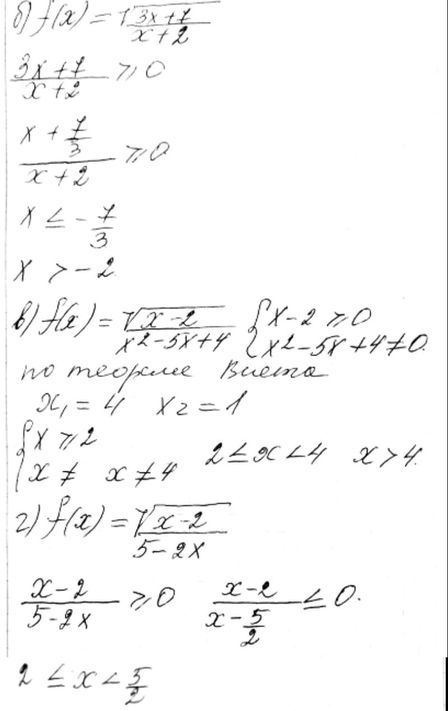 б) f(x) = √(3x+7)/(x+2)
(3x+7)/(x+2) ≥ 0
(x + 7/3)/(x+2) ≥ 0
x ≤ -7/3
x > -2
в) f(x) = √(x-2)/(x²-5x+4) { x-2 ≥ 0
x²-5x+4 ≠ 0.
по теореме Виета
x₁ = 4 x₂ = 1
{ x ≥ 2
x ≠ x ≠ 4 2 ≤ x < 4 x > 4.
г) f(x) = √(x-2)/(5-2x)
(x-2)/(5-2x) ≥ 0 (x-2)/(x-5/2) ≤ 0.
2 ≤ x < 5/2